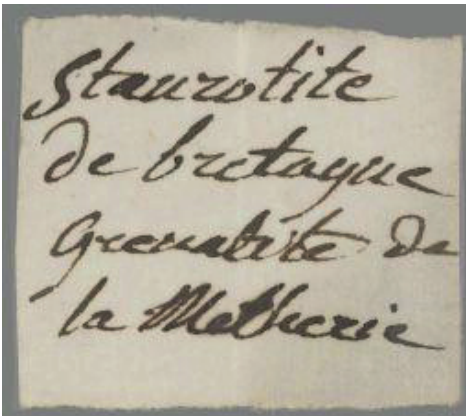 Staurotite
de bretagne
grenatite de
la Metherie